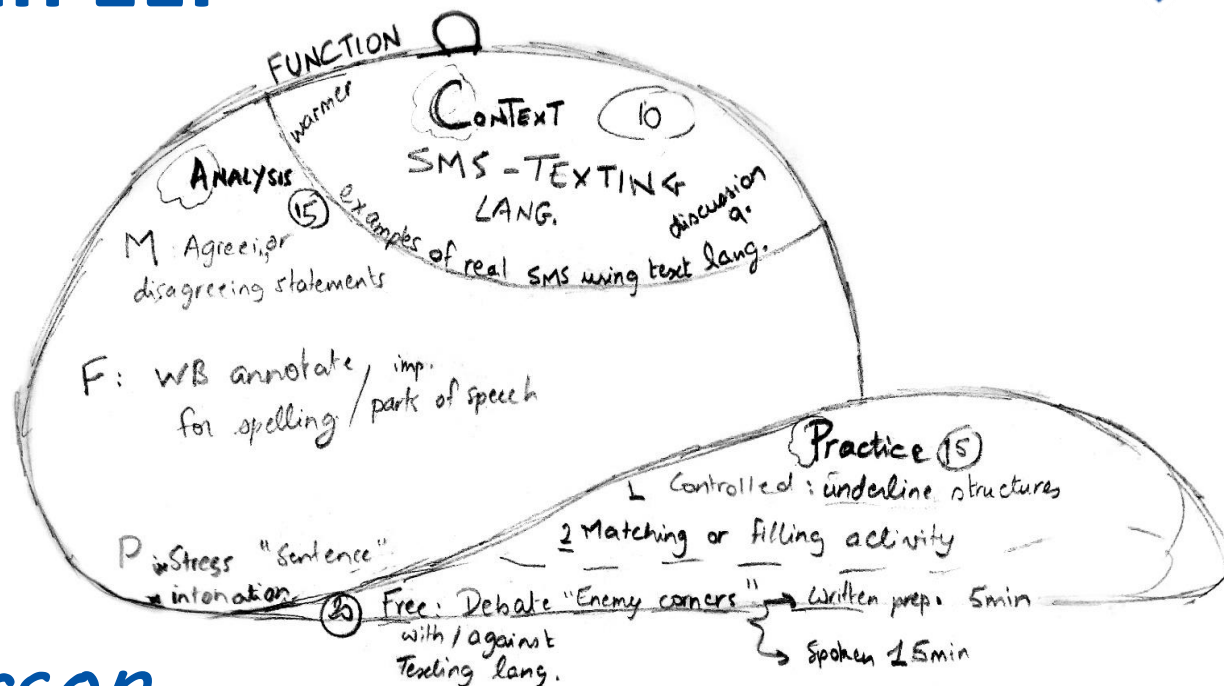 FUNCTION
warmer
CONTEXT 10
SMS - TEXTING
LANG.
discussion
q.
examples of real SMS using text lang.
ANALYSIS
15
M: Agreeing or
disagreeing statements
F: WB annotate / imp.
for spelling / part of speech
P Stress "Sentence"
intonation
Practice 15
1 Controlled: underline structures
2 Matching or filling activity
20 Free: Debate "Enemy corners" → written prep. 5min
with / against
Texting lang.
→ Spoken 15min